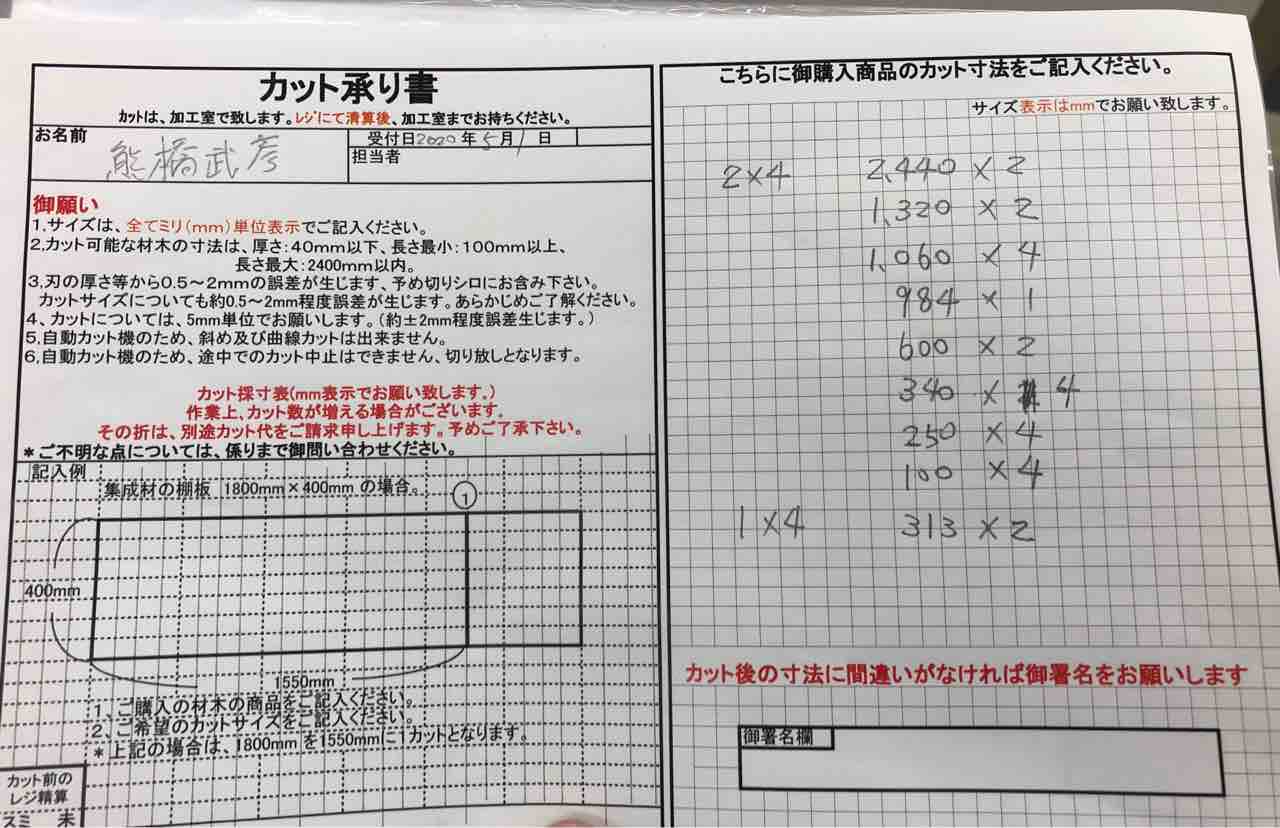 カット承り書
カットは、加工室で致します。レジにて清算後、加工室までお持ちください。
お名前
熊橋武彦
受付日2020年5月1日
担当者
御願い
1,サイズは、全てミリ(mm)単位表示でご記入ください。
2,カット可能な材木の寸法は、厚さ:40mm以下、長さ最小:100mm以上、
長さ最大:2400mm以内。
3,刃の厚さ等から0.5～2mmの誤差が生じます、予め切りシロにお含み下さい。
カットサイズについても約0.5～2mm程度誤差が生じます。あらかじめご了解ください。
4、カットについては、5mm単位でお願いします。(約±2mm程度誤差生じます。)
5,自動カット機のため、斜め及び曲線カットは出来ません。
6,自動カット機のため、途中でのカット中止はできません、切り放しとなります。
カット採寸表(mm表示でお願い致します。)
作業上、カット数が増える場合がございます。
その折は、別途カット代をご請求申し上げます。予めご了承下さい。
*ご不明な点については、係りまで御問い合わせください。
記入例
集成材の棚板 1800mm×400mmの場合。
1
400mm
1550mm
1、ご購入の材木の商品をご記入ください。
2、ご希望のカットサイズをご記入ください。
*上記の場合は、1800mmを1550mmに1カットとなります。
カット前の
レジ精算
スミ 未
こちらに御購入商品のカット寸法をご記入ください。
サイズ表示はmmでお願い致します。
2×4 2,440×2
1,320×2
1,060×4
984×1
600×2
340×4
250×4
100×4
1×4 313×2
カット後の寸法に間違いがなければ御署名をお願いします
御署名欄